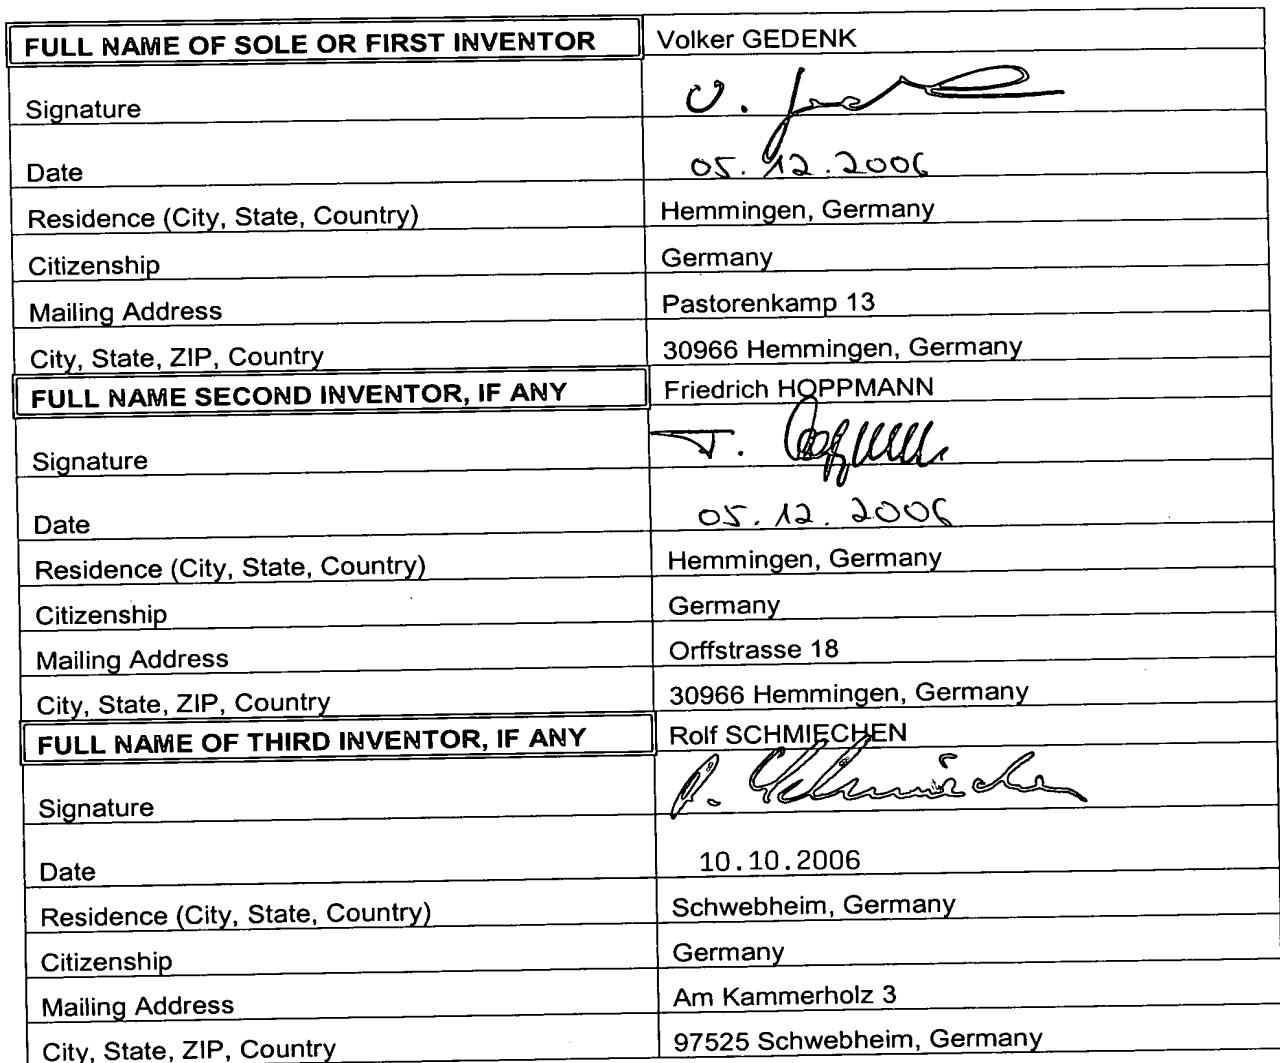 FULL NAME OF SOLE OR FIRST INVENTOR Volker GEDENK
Signature V. Gedenk
Date 05.12.2006
Residence (City, State, Country) Hemmingen, Germany
Citizenship Germany
Mailing Address Pastorenkamp 13
City, State, ZIP, Country 30966 Hemmingen, Germany
FULL NAME SECOND INVENTOR, IF ANY Friedrich HOPPMANN
Signature F. Hoppmann
Date 05.12.2006
Residence (City, State, Country) Hemmingen, Germany
Citizenship Germany
Mailing Address Orffstrasse 18
City, State, ZIP, Country 30966 Hemmingen, Germany
FULL NAME OF THIRD INVENTOR, IF ANY Rolf SCHMIECHEN
Signature R. Schmiechen
Date 10.10.2006
Residence (City, State, Country) Schwebheim, Germany
Citizenship Germany
Mailing Address Am Kammerholz 3
City, State, ZIP, Country 97525 Schwebheim, Germany